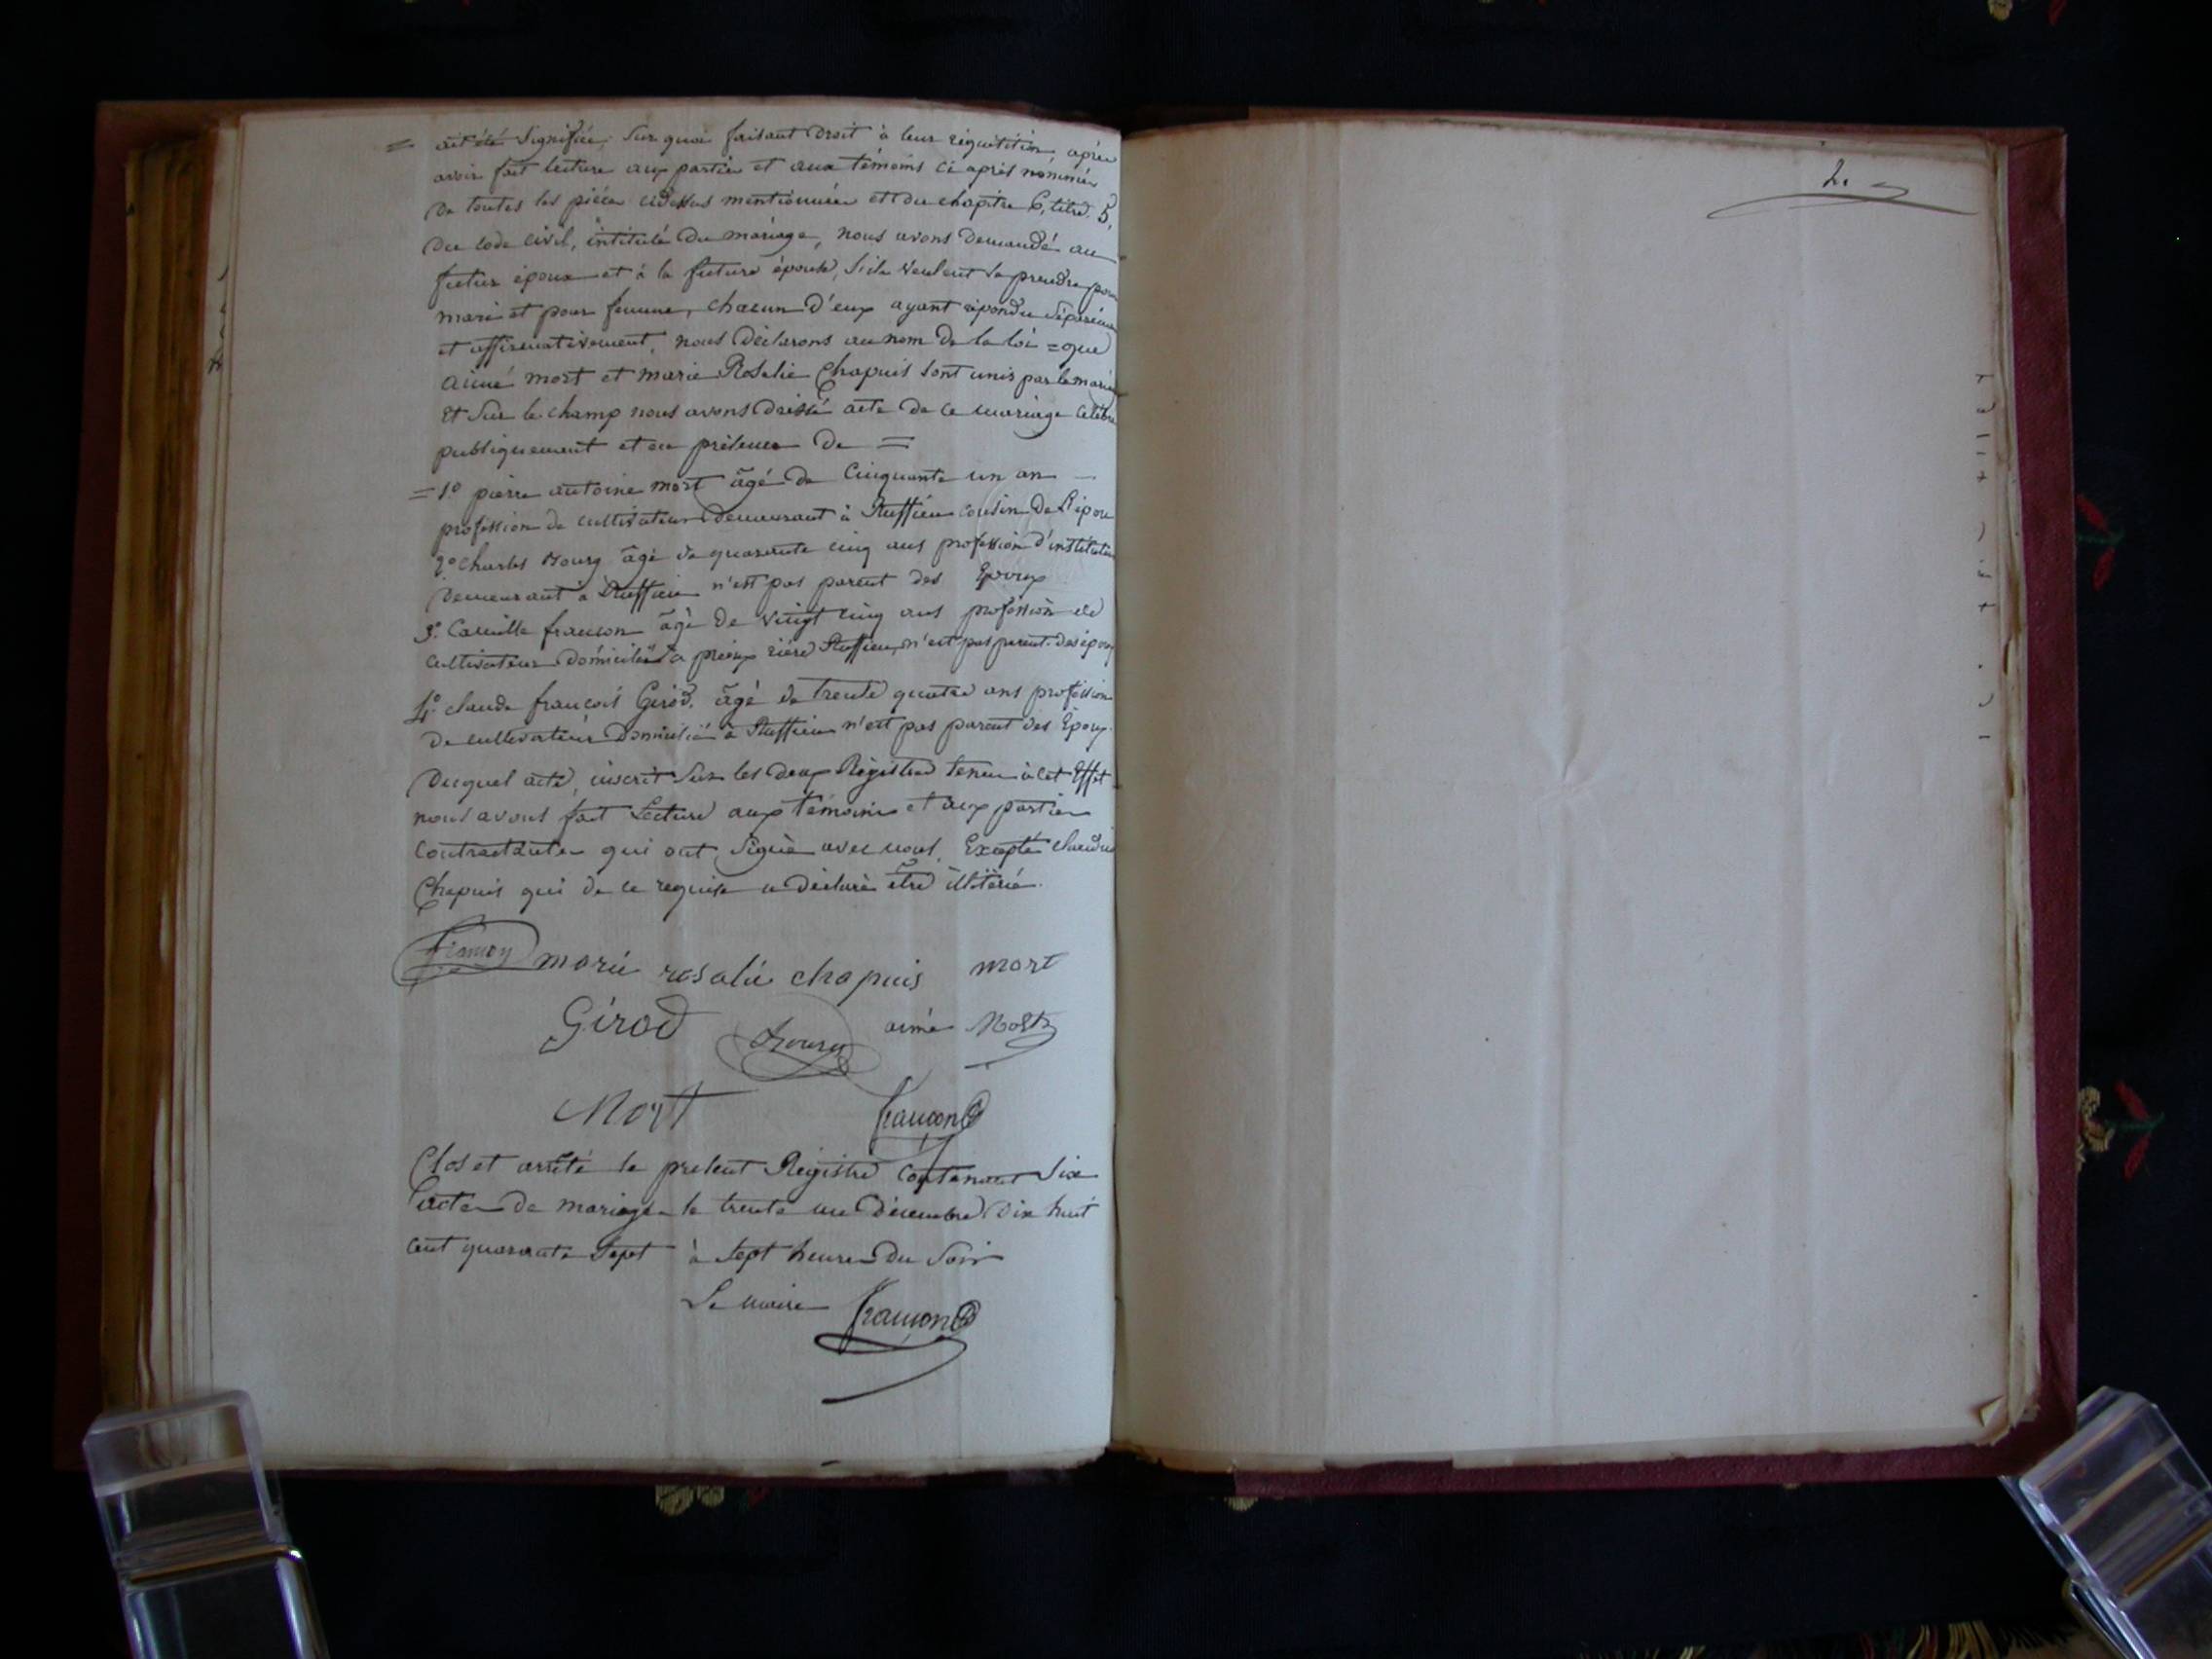 = ait été Signifiée; Sur quoi faisant Droit à leur réquisition, après
avoir fait lecture aux parties et aux témoins ci après nommés
De toutes les pièces cidessus mentionnées et du chapitre 6, titre 5,
Du Code Civil, intitulé Du mariage, nous avons Demandé au
futur époux et à la future épouse, S'ils veulent se prendre pour
mari et pour femme, chacun D'eux ayant répondu Séparém
et affirmativement, nous Déclarons au nom De la loi = que
aimé mort et marie Rosalie Chapuis Sont unis par le maria
Et Sur le champ nous avons Dressé acte De ce mariage Célébr
publiquement et en présence De =
= 1.° pierre antoine mort âgé De Cinquante un an
profession De cultivateur Demeurant à Ruffieu cousin De L'épou
2.° Charles âgé De quarante cinq ans profession D'institute
Demeurant à Ruffieu n'est pas parent Des Epoux
3.° Camille françon âgé De vingt cinq ans profession de
Cultivateur Domicilié à rière Ruffieu, n'est pas parent Des époux
4.° claude françois Girod. âgé De trente quatre ans profession
De cultivateur Domicilié à Ruffieu n'est pas parent Des Epoux.
Duquel acte, inscrit Sur les Deux Régistres tenu à cet Effet
nous avons fait Lecture aux témoins et aux parties
Contractantes qui ont Signé avec nous, Excepté
Chapuis qui De ce requise a Déclaré être illitéré.
françon marie rosalie chapuis mort
Girod aimé Mort
Mort françon
Clos et arrêté le présent Régistre Contenant Six
actes De mariage le trente un Décembre Dix huit
cent quarante Sept à Sept heures Du Soir
Le maire françon
2.